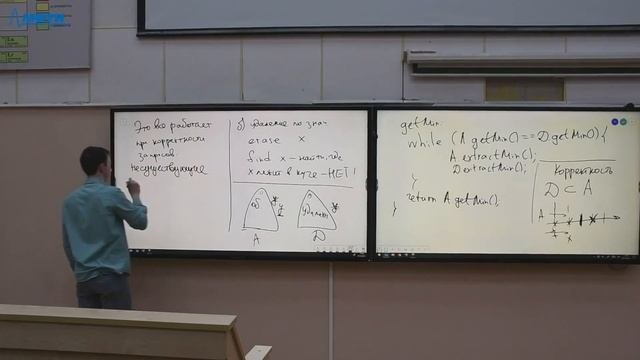 Это всё работает
при корректности
запросов
несуществующие
б) удаление по знач
erase x
find x – найти, где
x лежит в куче – НЕТ!
A
D
getMin:
while (A.getMin() == D.getMin()) {
A.extractMin();
D.extractMin();
}
return A.getMin();
}
Корректность
D ⊂ A
A
x